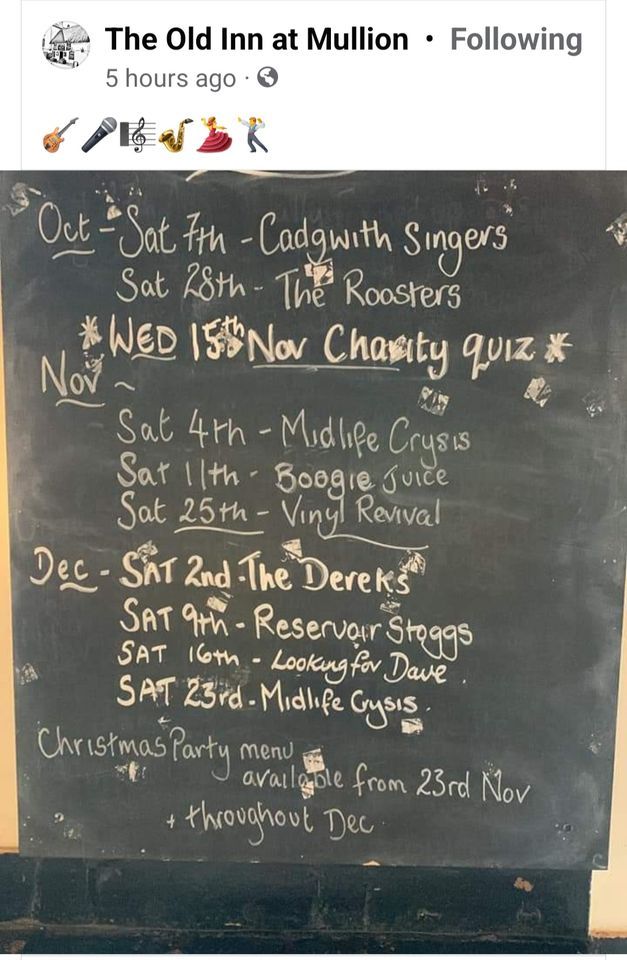 The Old Inn at Mullion • Following
5 hours ago ·
Oct - Sat 7th - Cadgwith Singers
Sat 28th - The Roosters
* WED 15th Nov Charity quiz *
Nov ~
Sat 4th - Midlife Crysis
Sat 11th - Boogie Juice
Sat 25th - Vinyl Revival
Dec - SAT 2nd - The Dereks
SAT 9th - Reservoir Stoggs
SAT 16th - Looking for Dave.
SAT 23rd - Midlife Cysis.
Christmas Party menu
available from 23rd Nov
+ throughout Dec